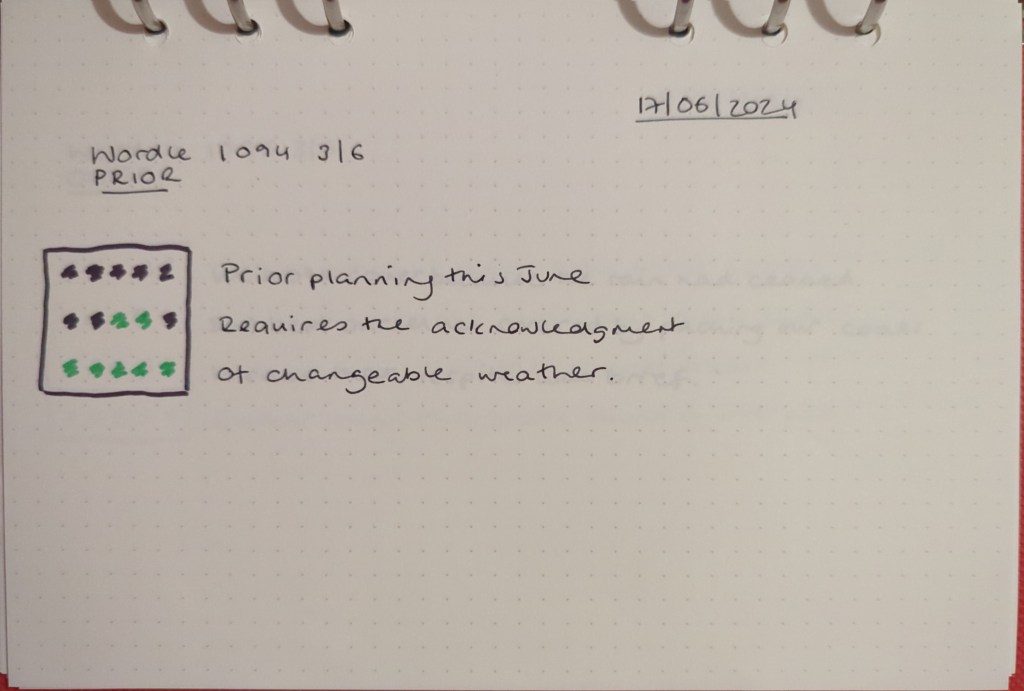 17/06/2024
Wordle 1094 3/6
PRIOR
Prior planning this June
Requires the acknowledgment
Of changeable weather.